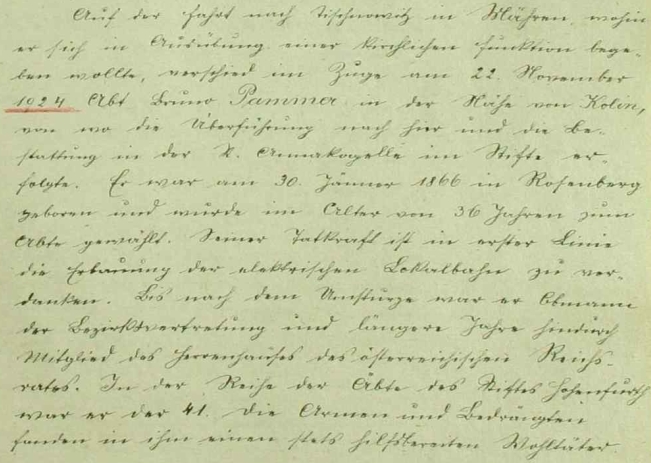 Auf der Fahrt nach Tischnowitz in Mähren, wohin
er sich in Ausübung einer kirchlichen Funktion bege-
ben wollte, verschied im Zuge am 22. November
1924 Abt Bruno Pammer in der Nähe von Kolin,
von wo die Überführung nach hier und die Be-
stattung in der St. Annakapelle im Stifte er-
folgte. Er war am 30. Jänner 1866 in Rosenberg
geboren und wurde im Alter von 36 Jahren zum
Abte gewählt. Seiner Tatkraft ist in erster Linie
die Erbauung der elektrischen Lokalbahn zu ver-
danken. Bis nach dem Umsturze war er Obmann
der Bezirksvertretung und längere Jahre hindurch
Mitglied des Herrenhauses des österreichischen Reichs-
rates. In der Reihe der Äbte des Stiftes Hohenfurth
war er der 41. Die Armen und Bedrängten
fanden in ihm einen stets hilfsbereiten Wohltäter